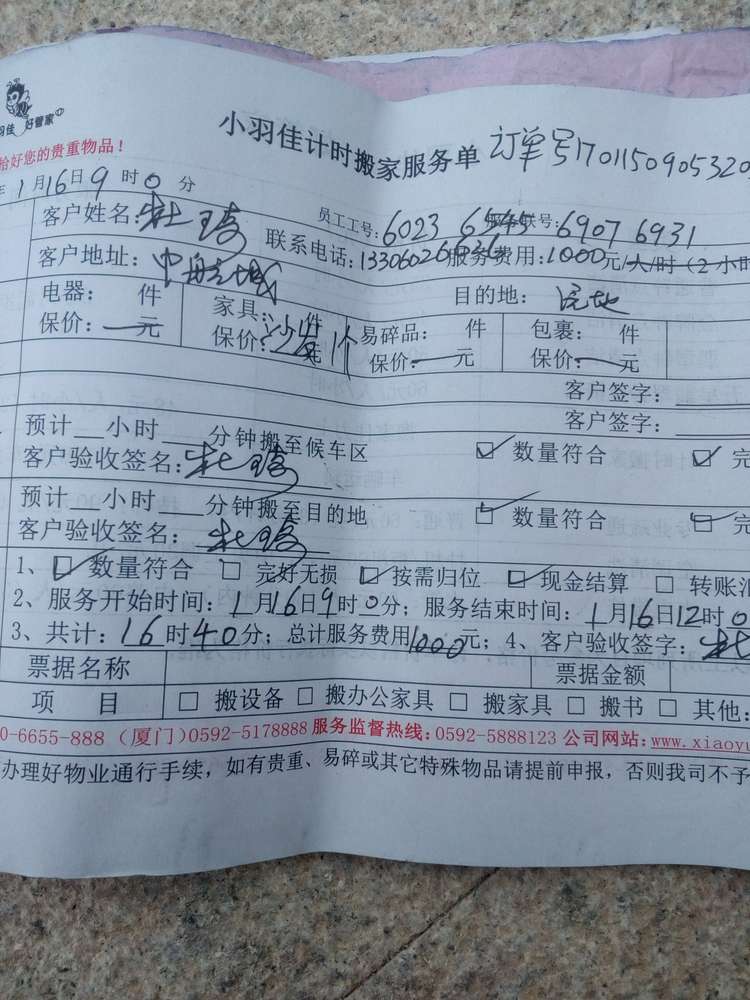 羽佳 好管家
小羽佳计时搬家服务单 订单号1701150905320
给好您的贵重物品！
年1月16日9时0分
客户姓名：杜琦 员工工号：6023 6545 联号：6907 6931
客户地址：中航城 联系电话：13306026636 服务费用：1000元/人/时（2小时
电器： 件 家具： 件 目的地：
保价：一元 保价：沙发1个 元 易碎品： 件 包裹： 件
保价：一元 保价：一元
客户签字：
客户签字：
预计 小时 分钟搬至候车区
客户验收签名：杜琦 ☑ 数量符合 ☑ 完
预计 小时 分钟搬至目的地
客户验收签名：杜琦 ☑ 数量符合 ☑ 完
1、☑ 数量符合 □ 完好无损 ☑ 按需归位 ☑ 现金结算 □ 转账汇
2、服务开始时间：1月16日9时0分；服务结束时间：1月16日12时0
3、共计：16时40分；总计服务费用1000元；4、客户验收签字：杜
票据名称 票据金额
项 目 □ 搬设备 □ 搬办公家具 □ 搬家具 □ 搬书 □ 其他：
0-6655-888（厦门）0592-5178888 服务监督热线：0592-5888123 公司网站：www.xiaoyu
办理好物业通行手续，如有贵重、易碎或其它特殊物品请提前申报，否则我司不予